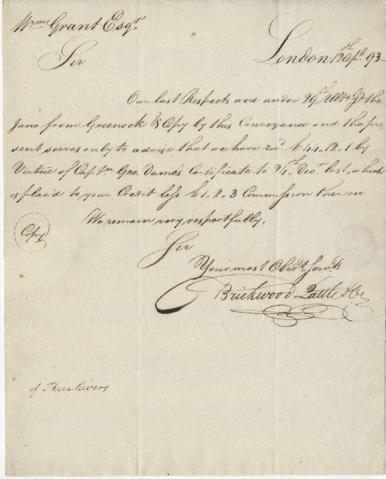 Wm Grant Esqr.
London 12 Apl. 93
Sir
Our last Respects were under 29th Ulto. pr the
Juno from Greenock & Copy by this Conveyance and the pre
sent serves only to advise that we have recd. £44.12.1 by
Virtue of Capt. Geo. Dame's Certificate to 24th Decr. last, which
is plac'd to your Credit less £1.2.3 Commission thereon
We remain very respectfully,
Copy
Sir
Your most Obedt. Servts
Brickwood Pattle & Co
of Three Rivers